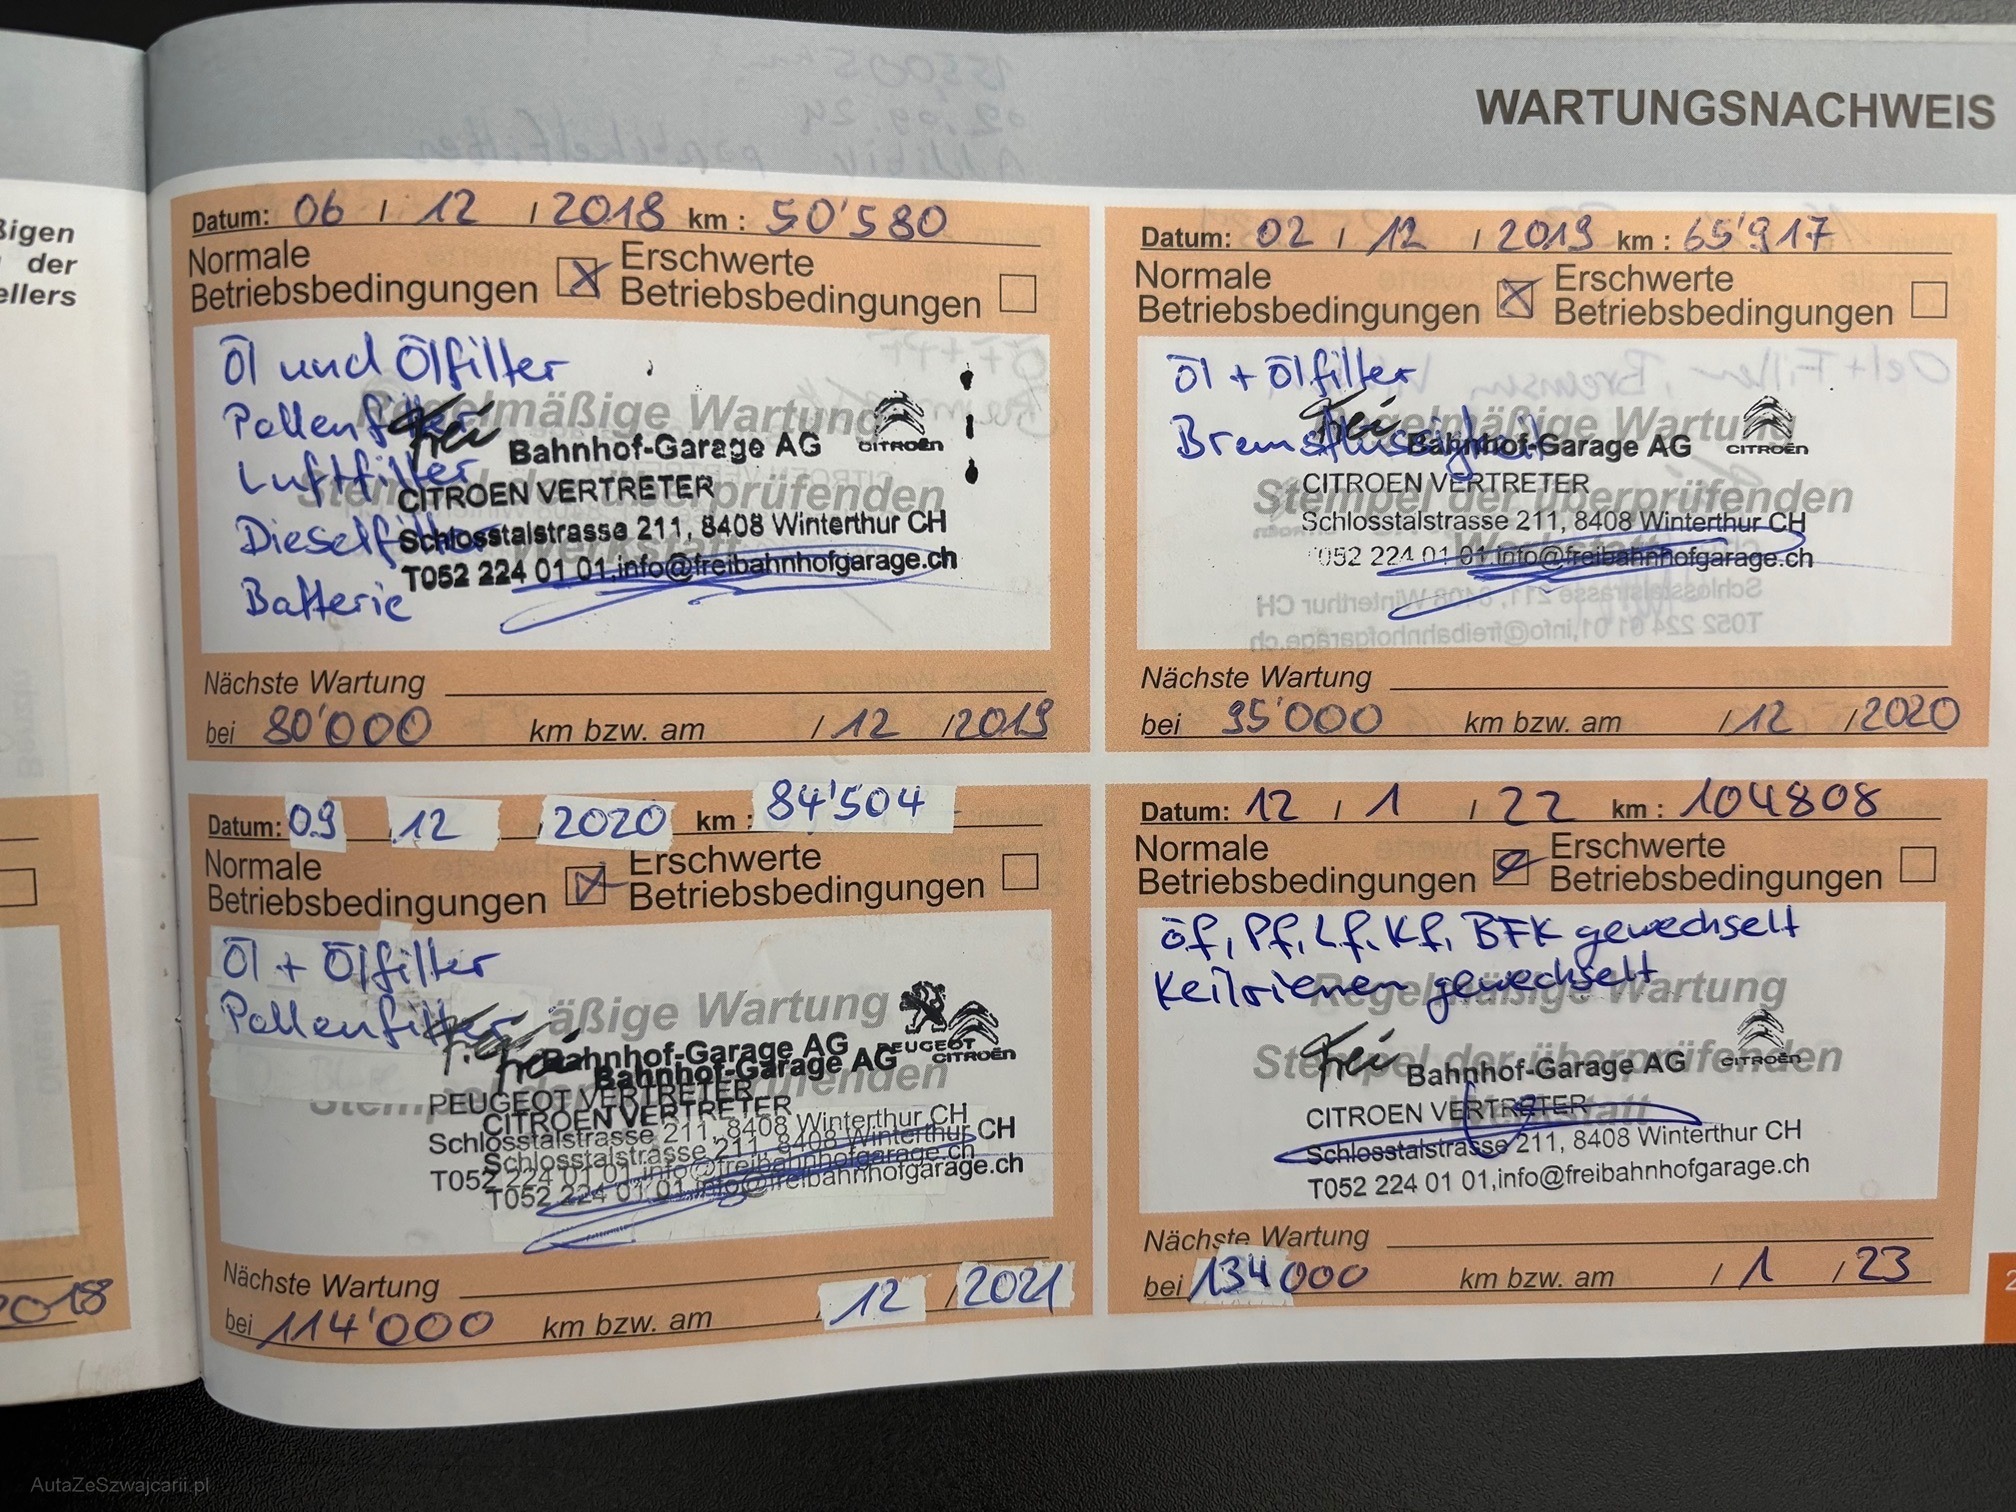 WARTUNGSNACHWEIS
ßigen
der
ellers
2018
Datum: 06 / 12 / 2018 km : 50'580
Normale Betriebsbedingungen
Erschwerte Betriebsbedingungen
Öl und Ölfilter
Pollenfilter
Luftfilter
Dieselfilter
Batterie
Regelmäßige Wartung
Stempel der überprüfenden
Werkstatt
Frei Bahnhof-Garage AG
CITROËN
CITROEN VERTRETER
Schlosstalstrasse 211, 8408 Winterthur CH
T052 224 01 01,info@freibahnhofgarage.ch
Nächste Wartung
bei 80'000 km bzw. am / 12 / 2019
Datum: 02 / 12 / 2019 km : 65'917
Normale Betriebsbedingungen
Erschwerte Betriebsbedingungen
Öl + Ölfilter
Bremsflüssigkeit
Regelmäßige Wartung
Stempel der überprüfenden
Werkstatt
Frei Bahnhof-Garage AG
CITROËN
CITROEN VERTRETER
Schlosstalstrasse 211, 8408 Winterthur CH
052 224 01 01,info@freibahnhofgarage.ch
Nächste Wartung
bei 95'000 km bzw. am / 12 / 2020
Datum: 09 12 2020 km : 84'504
Normale Betriebsbedingungen
Erschwerte Betriebsbedingungen
Öl + Ölfilter
Pollenfilter
äßige Wartung
Frei Bahnhof-Garage AG
PEUGEOT
Frei Bahnhof-Garage AG
CITROËN
PEUGEOT VERTRETER
CITROEN VERTRETER
Schlosstalstrasse 211, 8408 Winterthur CH
Schlosstalstrasse 211, 8408 Winterthur CH
T052 224 01 01,info@freibahnhofgarage.ch
T052 224 01 01,info@freibahnhofgarage.ch
Nächste Wartung
bei 114'000 km bzw. am 12 / 2021
Datum: 12 / 1 / 22 km : 104808
Normale Betriebsbedingungen
Erschwerte Betriebsbedingungen
Öf, Pf, Lf, Kf, BFK gewechselt
Keilriemen gewechselt
Regelmäßige Wartung
Stempel der überprüfenden
Werkstatt
Frei Bahnhof-Garage AG
CITROËN
CITROEN VERTRETER
Schlosstalstrasse 211, 8408 Winterthur CH
T052 224 01 01,info@freibahnhofgarage.ch
Nächste Wartung
bei 134000 km bzw. am / 1 / 23
2
AutaZeSzwajcarii.pl